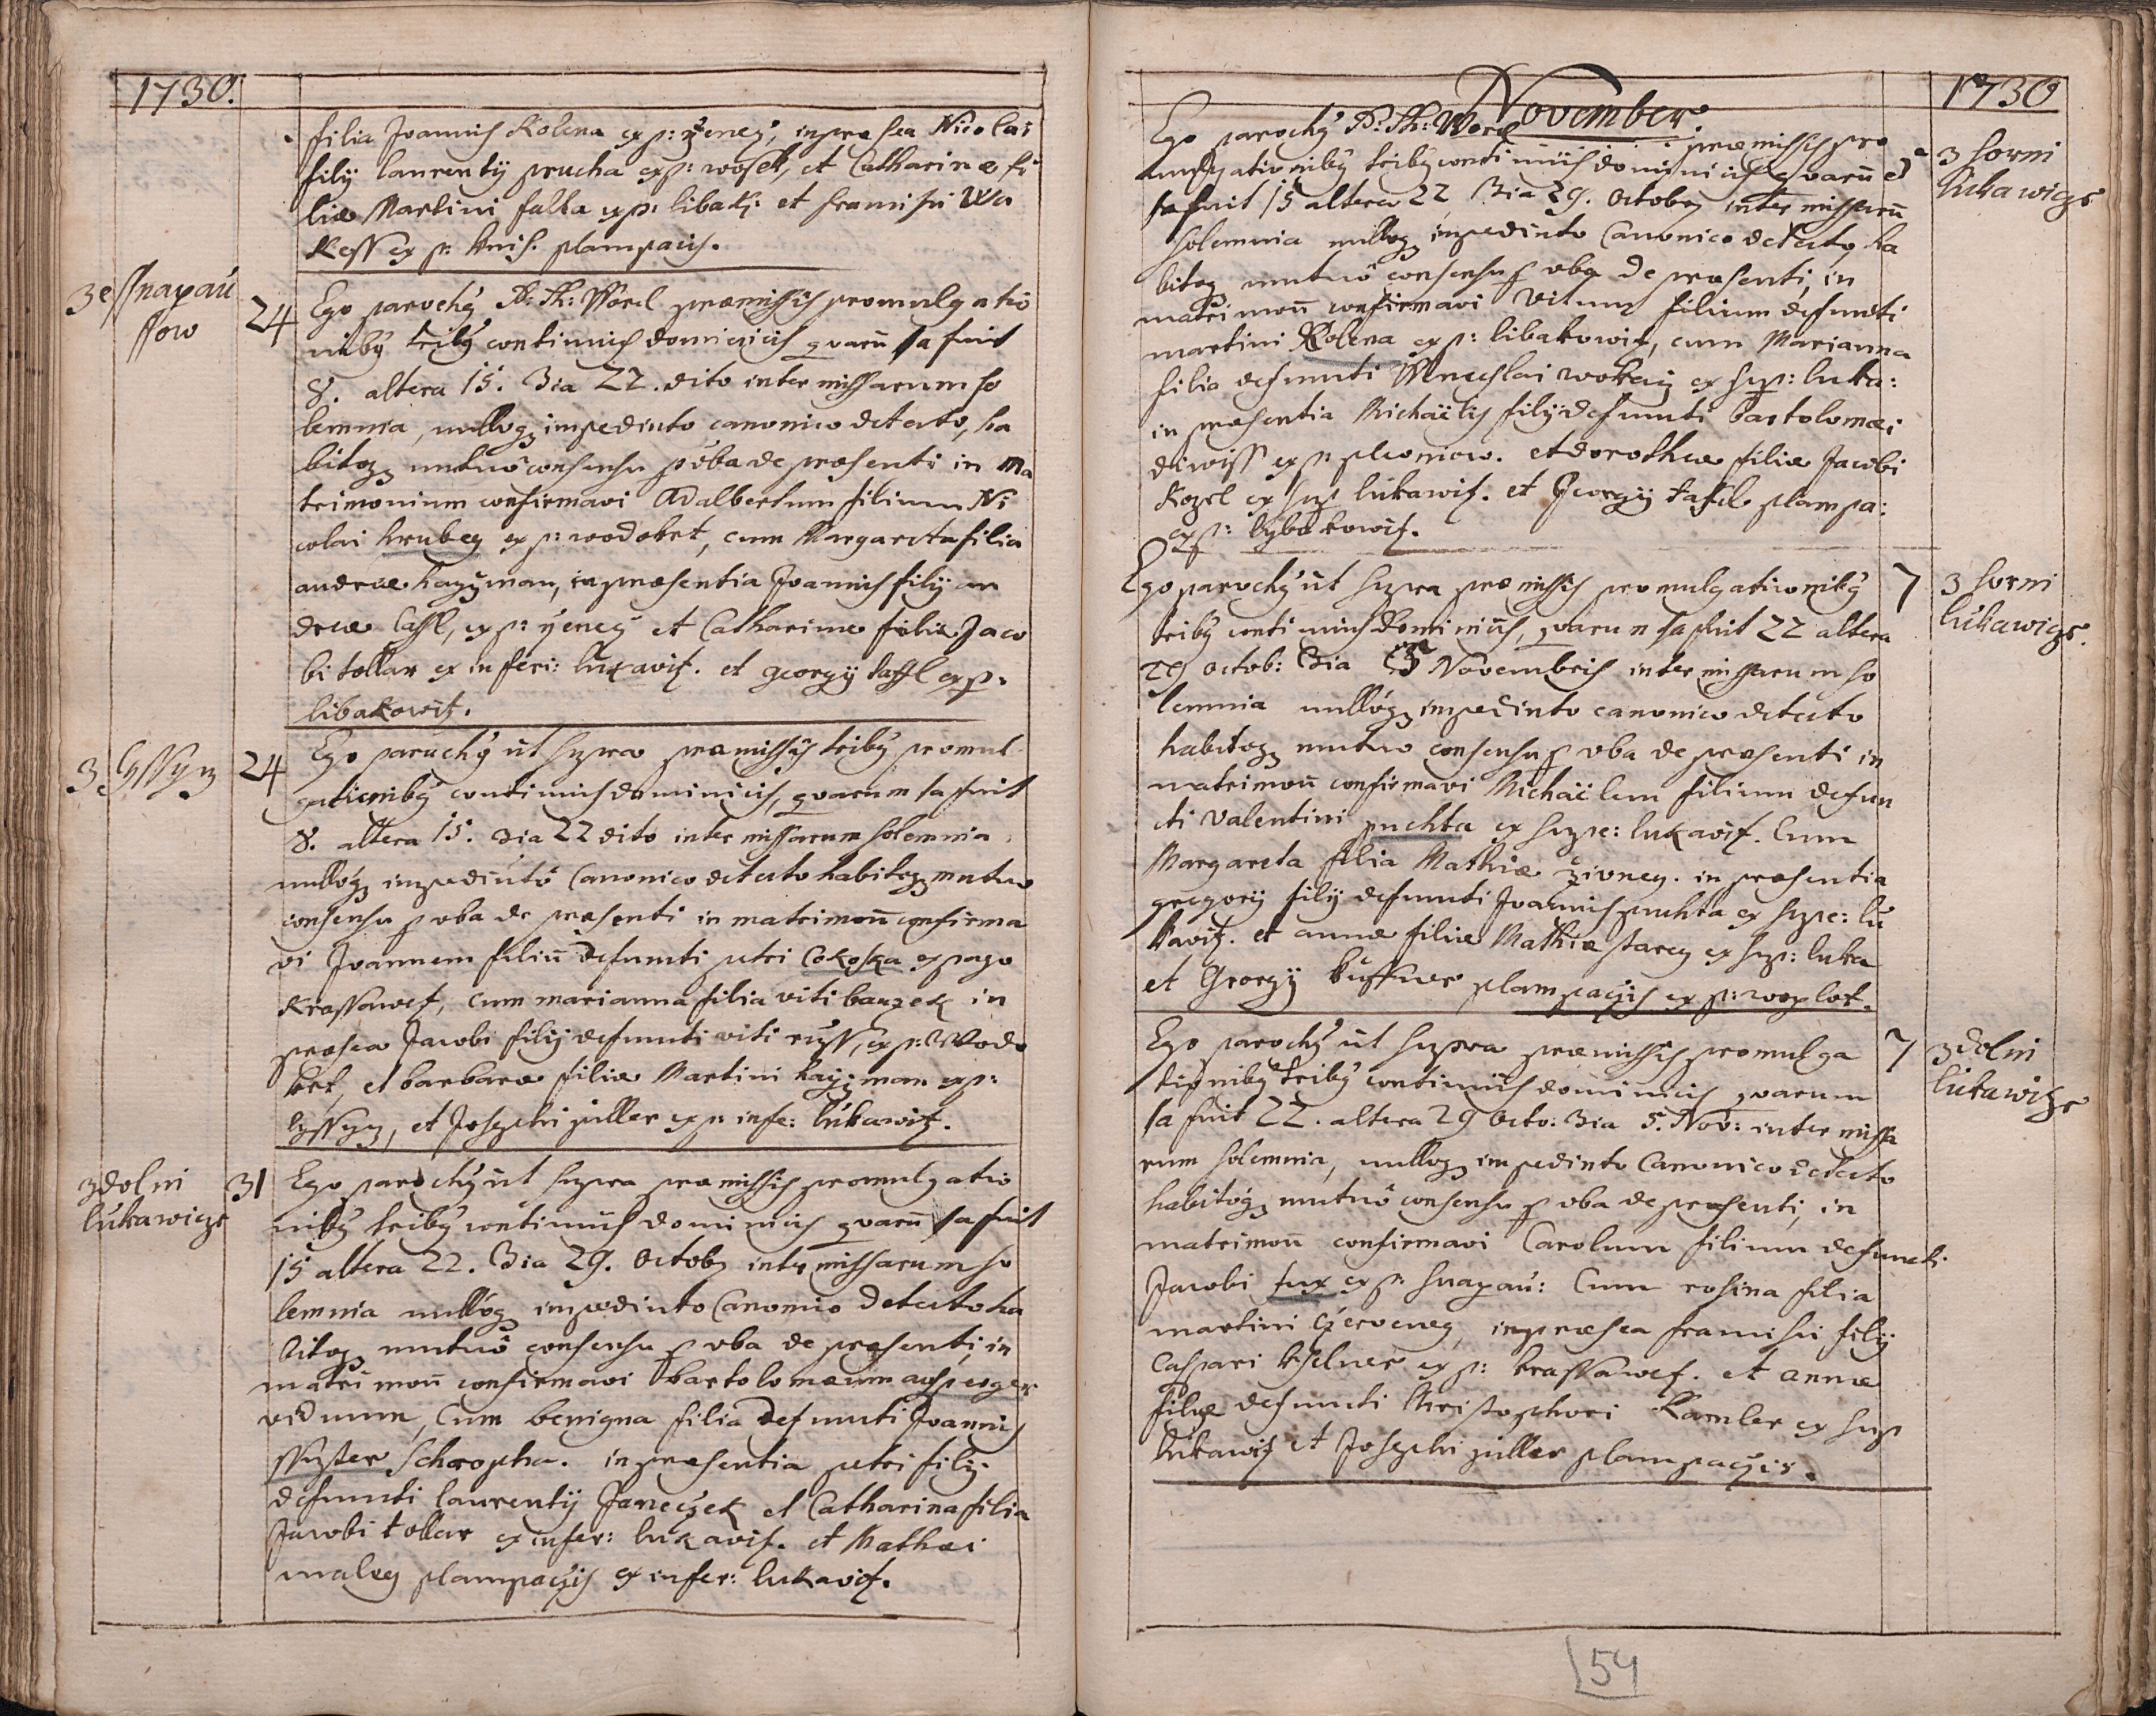 1730.
filia Joannis Kolena ex p: ÿeneÿ, in præsea Nicolai
filÿ laurentÿ prucha ex p: wosek, et Catharinæ fi
liæ Martini falta ex p: libak: et francisci Wa
ex p: knis. plampacis.
3e ssnapau
ssow
24
Ego parochÿ P: Th: Worel præmissis promulgatio
nibÿ tribÿ continuis dominicis quarũ 1a fuit
8. altera 15. 3ia 22. dito inter missarum so
lemnia, nulloq impedinto canonico detecto, ha
bitoq mutuo consensu p vba de præsenti in ma
trimonium confirmavi Adalbertum filium Ni
colai hrubeÿ ex p: wodokrt, cum Margareta filia
andreæ hayzman, in præsentia Joannis filÿ an
dreæ Cassl, ex p: ÿeneÿ et Catharinæ filiæ Jaco
bi tollar ex inferi: lukavitz. et georgÿ tassl ex p:
libakowitz.
3 Lyssyn
24
Ego parochÿ ut supra præmissis tribÿ promul
gationibÿ continuis dominicis, quarum 1a fuit
8. altera 15. 3ia 22 dito inter missarum solemnia
nulloq impedinto Canonico detecto habitoq mutuo
consensu p vba de præsenti in matrimoñ confirma
vi Joannem filiũ defuncti petri Cokoska ex pago
Krassowetz, cum marianna filia viti bauzek in
præsea Jacobi filÿ defuncti viti russ, ex p: Wodo
krt, et barbaræ filiæ Martini hayzman ex p:
lyssyn, et Josephi piller ex p: infe: lukawitz.
3 dolni
lukawicze
31
Ego parochÿ ut supra præmissis promulgatio
nibÿ tribÿ continuis dominicis quarũ 1a fuit
15 altera 22. 3ia 29. Octobr inter missarum so
lemnia nulloq impedinto Canonico detecto ha
bitoq mutuo consensu p vba de præsenti, in
matrimoñ confirmavi bartolomæum
viduum, Cum benigna filia defuncti Joannis
in præsentia petri filÿ
defuncti laurentÿ Janeczek et Catharina filia
Jacobi tollar ex infer: lukavitz. et Mathæi
maleÿ plampaczis ex infer: lukavitz.
November.
1730
3 horni
lukawicze
Ego parochÿ P: Th: Worel præmissis pro
mulgationibÿ tribÿ continuis dominicis quarũ
1a fuit 15 altera 22 3ia 29. Octobr inter missarũ
solemnia nulloq impedinto Canonico detecto, ha
bitoq mutuo consensu p vba de præsenti, in
matrimoñ confirmavi Vitum filium defuncti
martini Kolena ex p: libakowitz, cum Marianna
filia defuncti Wenceslai wokaÿ ex sup: luka:
in præsentia Michaëlis filÿ defuncti bartolomæi
diwiss ex p: plewniow. et dorotheæ filiæ Jacobi
Kozel ex sup lukawitz. et Georgÿ tassl plampa:
ex p: lybakowitz.
7
3 horni
lukawicze.
Ego parochÿ ut supra præmissis promulgationibÿ
tribÿ continuis dominicis, quarum 1a fuit 22 altera
29 octob: 3ia 5 Novembris inter missarum so
lemnia nulloq impedinto canonico detecto
habitoq mutuo consensu p vba de præsenti in
matrimoñ confirmavi Michaëlem filium defun
cti Valentini puchta ex supe: lukawitz. Cum
Margareta filia Mathiæ zivneÿ. in præsentia
gregorÿ filÿ defuncti Joannis puchta ex supe: lu
kavitz. et annæ filiæ Mathiæ stareÿ ex sup: luka
et Georgÿ kuffner plampaczis ex p:
7
3 dolni
lukawicze
Ego parochÿ ut supra præmissis promulga
tionibÿ tribÿ continuis dominicis quarum
1a fuit 22. altera 29 Octo: 3ia 5. Nov: inter missa
rum solemnia, nulloq impedinto Canonico detecto
habitoq mutuo consensu p vba de præsenti, in
matrimoñ confirmavi Carolum filium defuncti
Jacobi fux ex p: snapau: Cum rosina filia
martini czerveneÿ, in præsea francisci filÿ
Caspari kelner ex p: krassowetz. et annæ
filiæ defuncti Christophori Ramler ex sup
lukawitz et Josephi piller plampaczis.
54